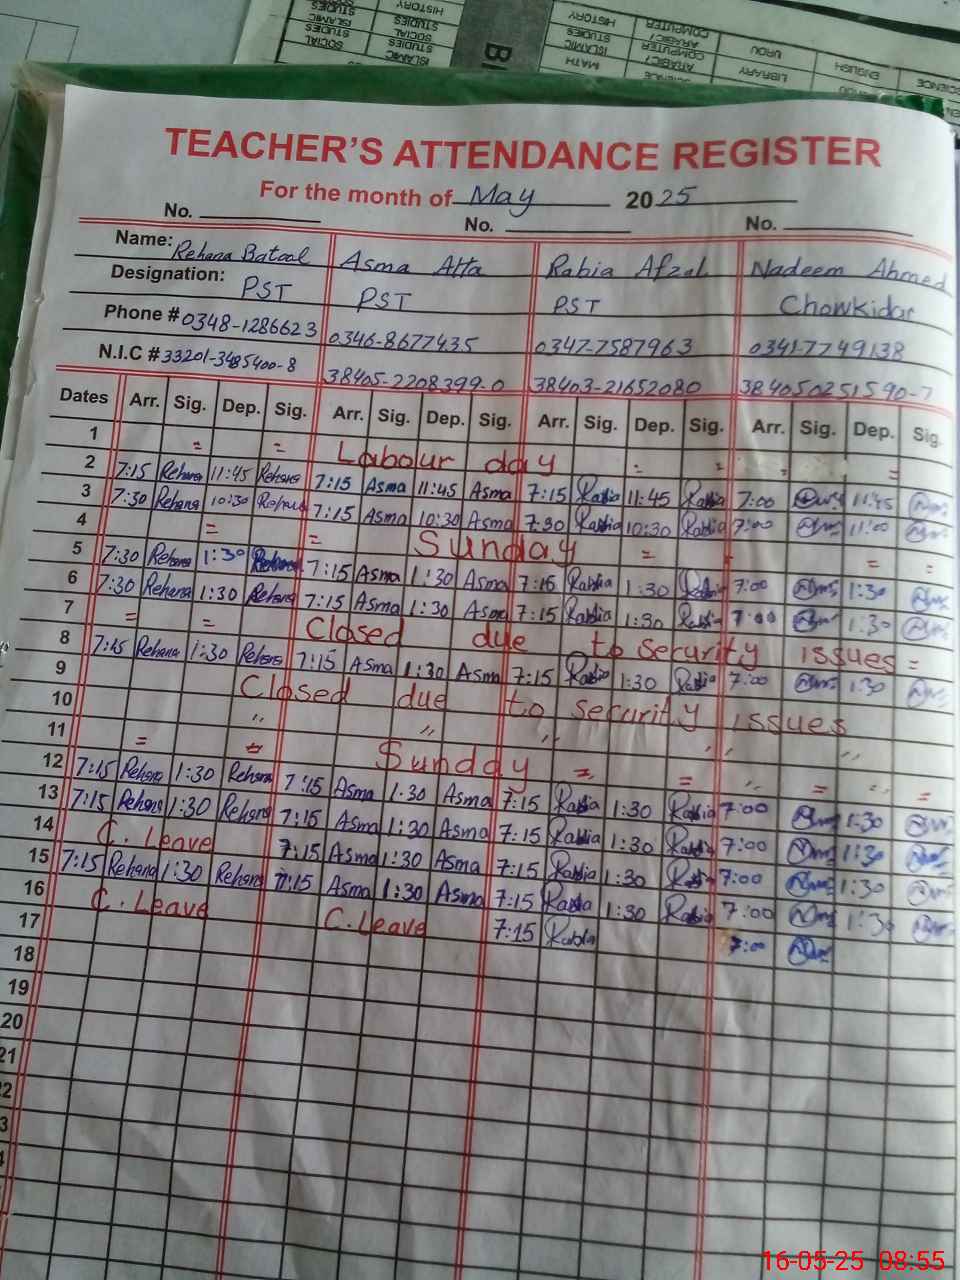 HISTORY
STUDIES
ISLAMIC
STUDIES
SOCIAL
STUDIES
ISLAMIC
HISTORY
STUDIES
ISLAMIC
MATH
COMPUTER
ARABIC/
COMPUTER
ARABIC/
URDU
LIBRARY
ENGLISH
SCIENCE
TEACHER'S ATTENDANCE REGISTER
For the month of May 2025
No. No. No.
Name: Rehana Batool Asma Atta Rabia Afzal Nadeem Ahmed
Designation: PST PST PST Chowkidar
Phone # 0348-1286623 0346-8677435 0347-7587963 0341-7749138
N.I.C # 33201-3485400-8 38405-2208399-0 38403-21652080 384050251590-7
Dates Arr. Sig. Dep. Sig. Arr. Sig. Dep. Sig. Arr. Sig. Dep. Sig. Arr. Sig. Dep. Sig.
1 = = Labour day = = = =
2 7:15 Rehana 11:45 Rehana 7:15 Asma 11:45 Asma 7:15 Rabia 11:45 Rabia 7:00 11:45
3 7:30 Rehana 10:30 Rehana 7:15 Asma 10:30 Asma 7:30 Rabia 10:30 Rabia 7:00 11:00
4 = = Sunday = = = =
5 7:30 Rehana 1:30 Rehana 7:15 Asma 1:30 Asma 7:15 Rabia 1:30 Rabia 7:00 1:30
6 7:30 Rehana 1:30 Rehana 7:15 Asma 1:30 Asma 7:15 Rabia 1:30 Rabia 7:00 1:30
7 = = Closed due to security issues =
8 7:15 Rehana 1:30 Rehana 7:15 Asma 1:30 Asma 7:15 Rabia 1:30 Rabia 7:00 1:30
9 Closed due to security issues
10 " " " " "
11 = = Sunday = = " = " =
12 7:15 Rehana 1:30 Rehana 7:15 Asma 1:30 Asma 7:15 Rabia 1:30 Rabia 7:00 1:30
13 7:15 Rehana 1:30 Rehana 7:15 Asma 1:30 Asma 7:15 Rabia 1:30 Rabia 7:00 1:30
14 C. Leave 7:15 Asma 1:30 Asma 7:15 Rabia 1:30 Rabia 7:00 1:30
15 7:15 Rehana 1:30 Rehana 7:15 Asma 1:30 Asma 7:15 Rabia 1:30 Rabia 7:00 1:30
16 C. Leave C. Leave 7:15 Rabia 7:00
17
18
19
20
21
2
3
16-05-25 08:55